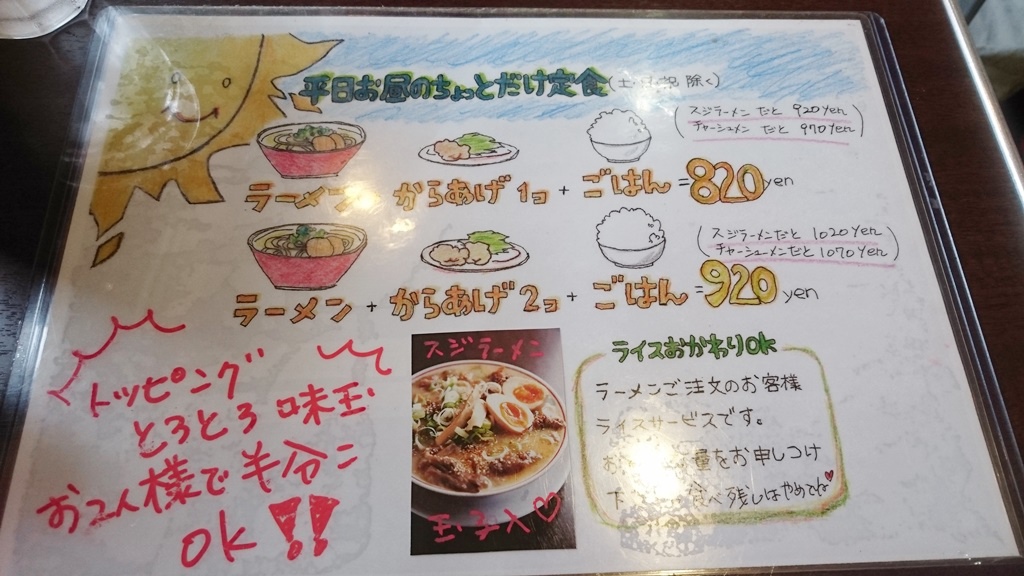 平日お昼のちょっとだけ定食(土・日・祝 除く)
(スジラーメンだと 920yen
チャーシューメン だと 970yen)
ラーメン からあげ 1コ + ごはん = 820yen
(スジラーメンだと 1020yen
チャーシューメンだと 1070yen)
ラーメン + からあげ 2コ + ごはん = 920yen
トッピング
とろとろ味玉
お2人様で半分こ
OK!!
スジラーメン
玉子入♡
ライスおかわりOK
ラーメンご注文のお客様
ライスサービスです。
量をお申しつけ
下 食べ残しはやめてね♡